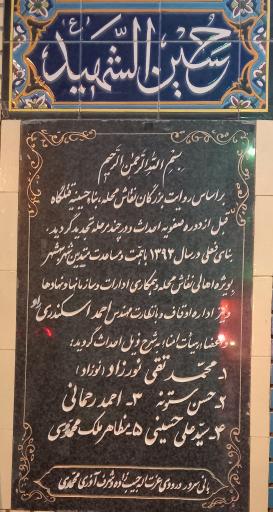 حسین الشهید ع
بسم الله الرحمن الرحیم
بر اساس روایت بزرگان نقاش محله، بناء حسینیه
قبل از دوره صفویه احداث و در چند مرحله تجدید گردید.
بنای فعلی در سال ۱۳۹۳ با همت و مساعدت متدینین شهر مهشهر
بویژه اهالی نقاش محله و همکاری ادارات و سازمانها و نهادها
و نیز اداره اوقاف و با نظارت مهندس احمد اسکندری
و اعضاء هیأت امناء به شرح ذیل احداث گردید:
۱- محمد تقی نورزاد (نوزاد)
۲- حسن ستونه ۳- احمد رحمانی
۴- سید علی حسینی ۵- مظاهر ملک محمدی
بانی سر در ورودی عزت اله حبیب زاده و شرف آذری محمدی